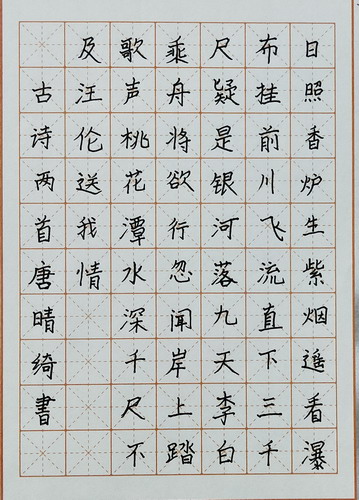 日照香炉生紫烟遥看瀑
布挂前川飞流直下三千
尺疑是银河落九天李白
乘舟将欲行忽闻岸上踏
歌声桃花潭水深千尺不
及汪伦送我情
古诗两首唐晴绮書